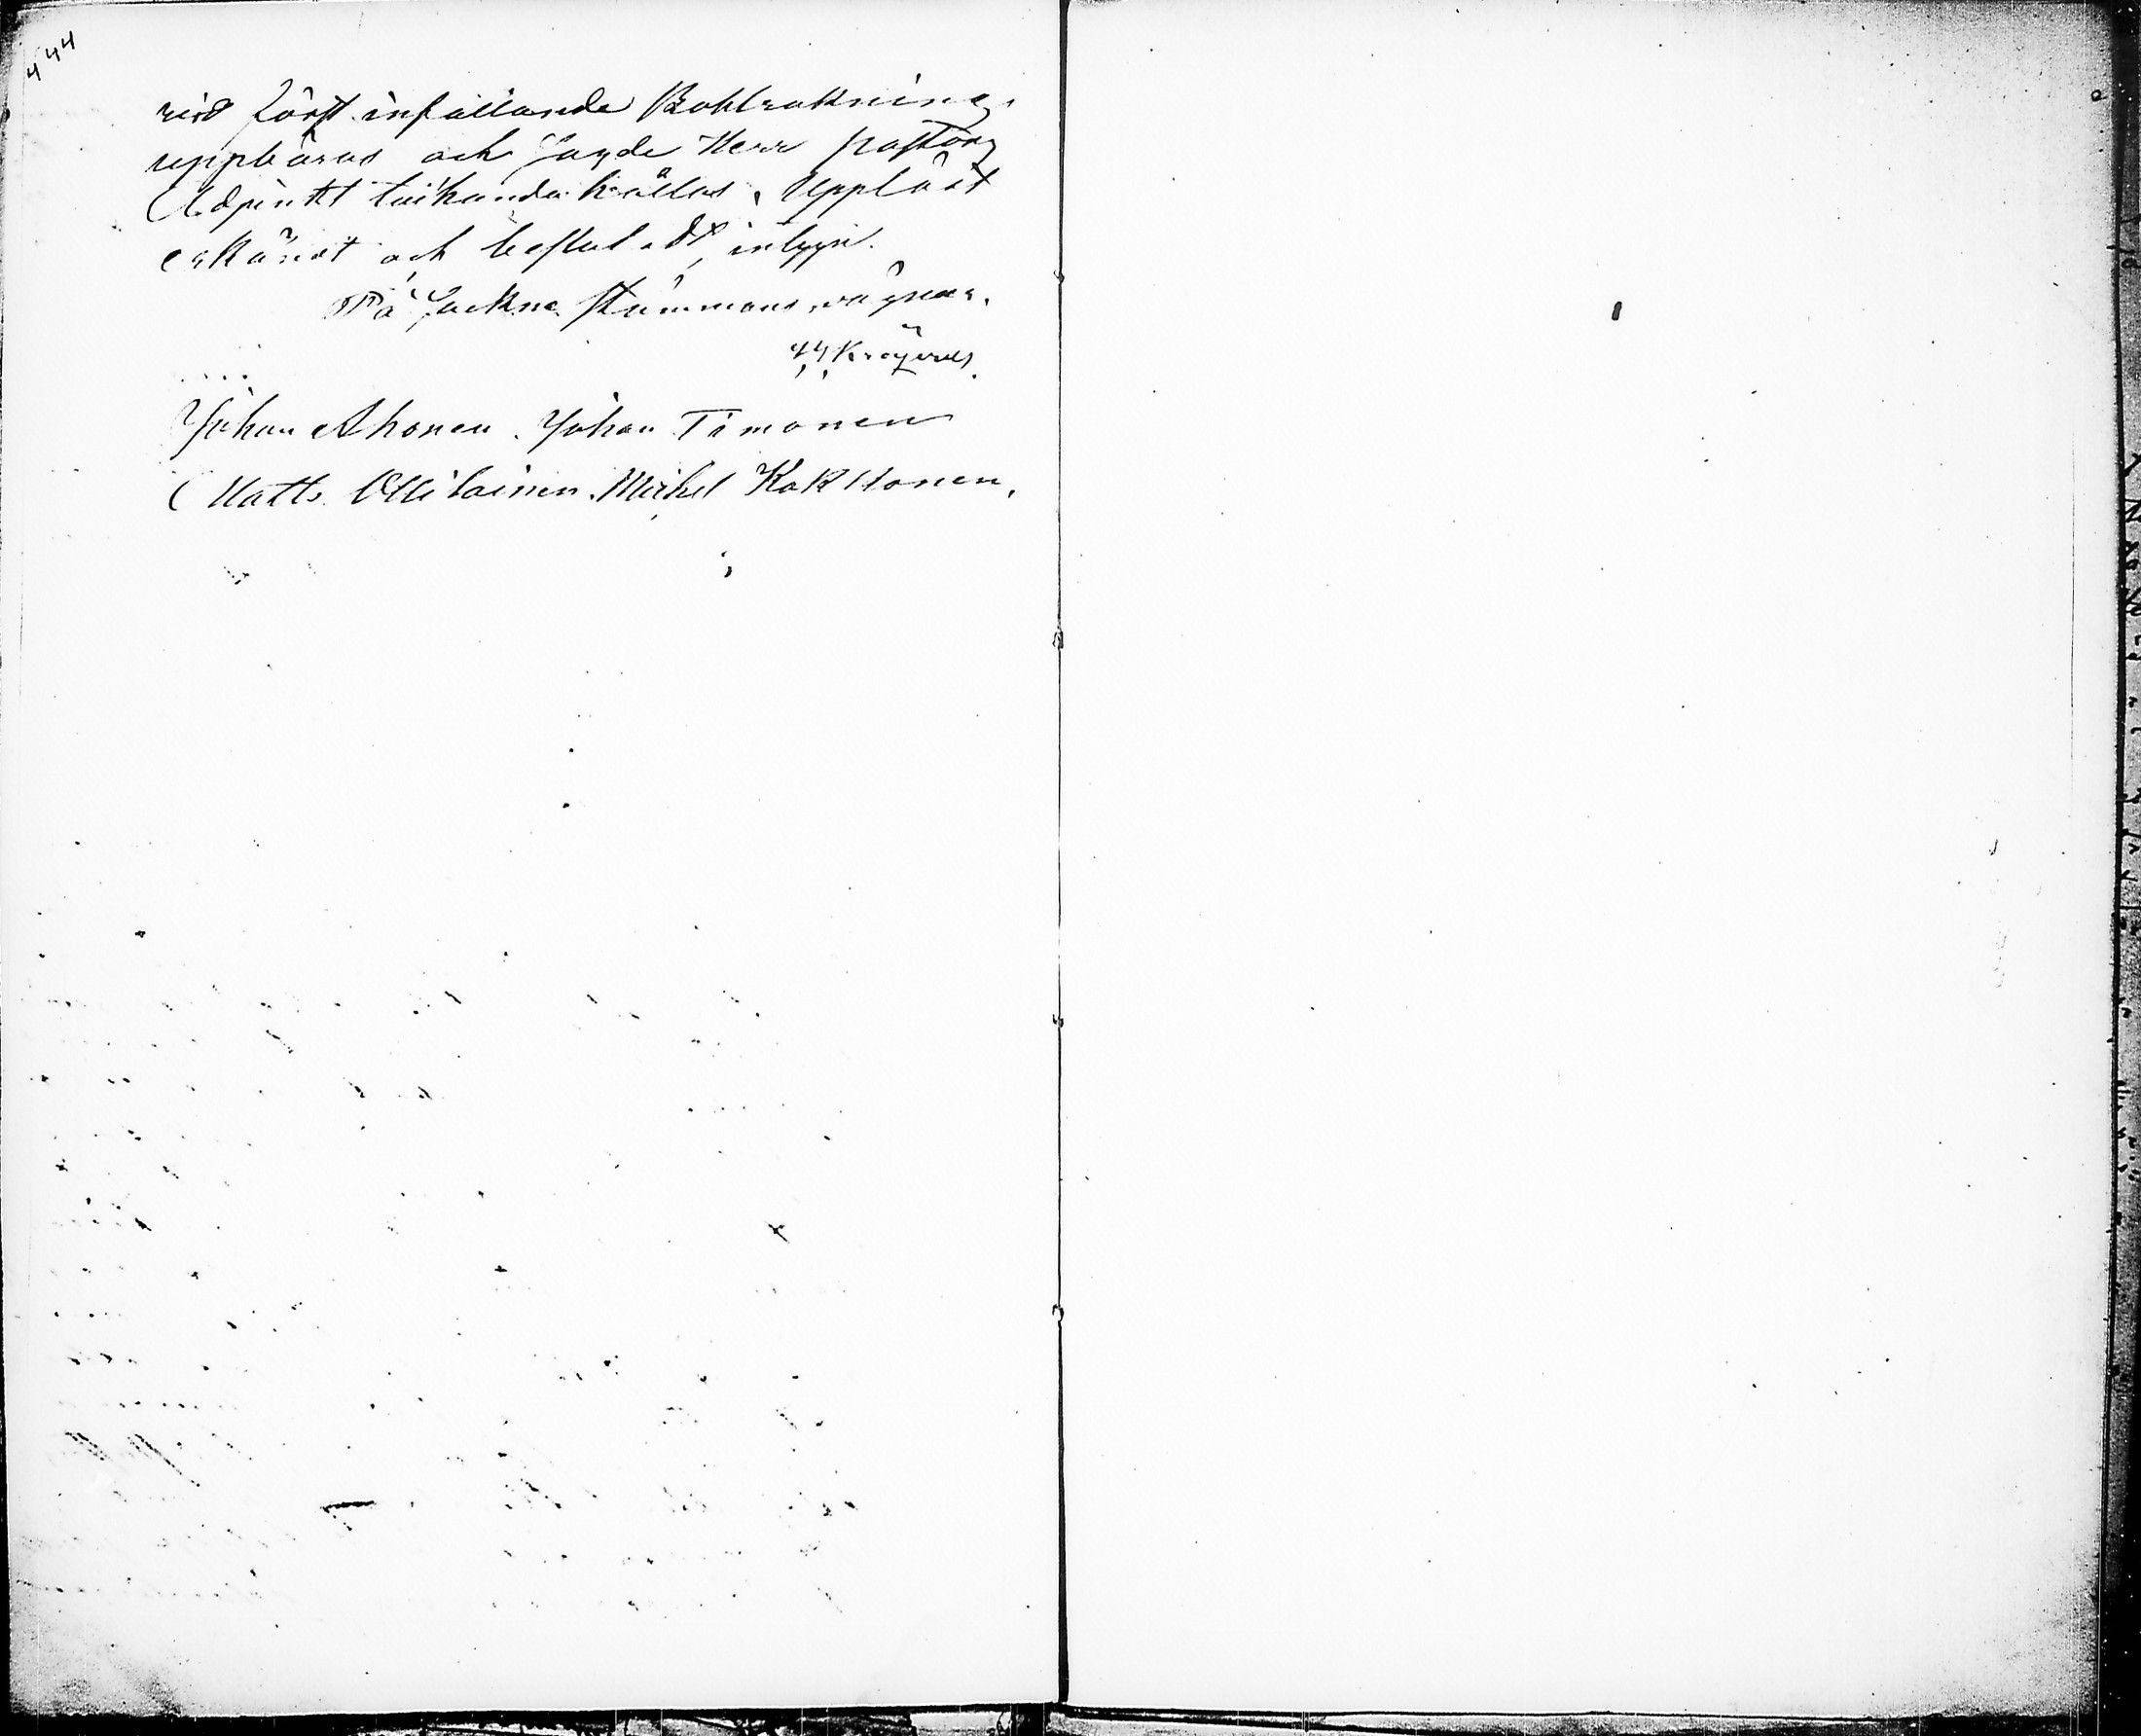 444
wid först infallande Bohlräkning
uppbäras och Sagde Herr pastors
Adjunkt tillhandahållas. Uppläst
erkändt och besluladt, intyga.
På Sockne stämmans vägnar.
Johan Ahonen. Johan Timonen
Matts Ollilainen. Michel Kakkonen.